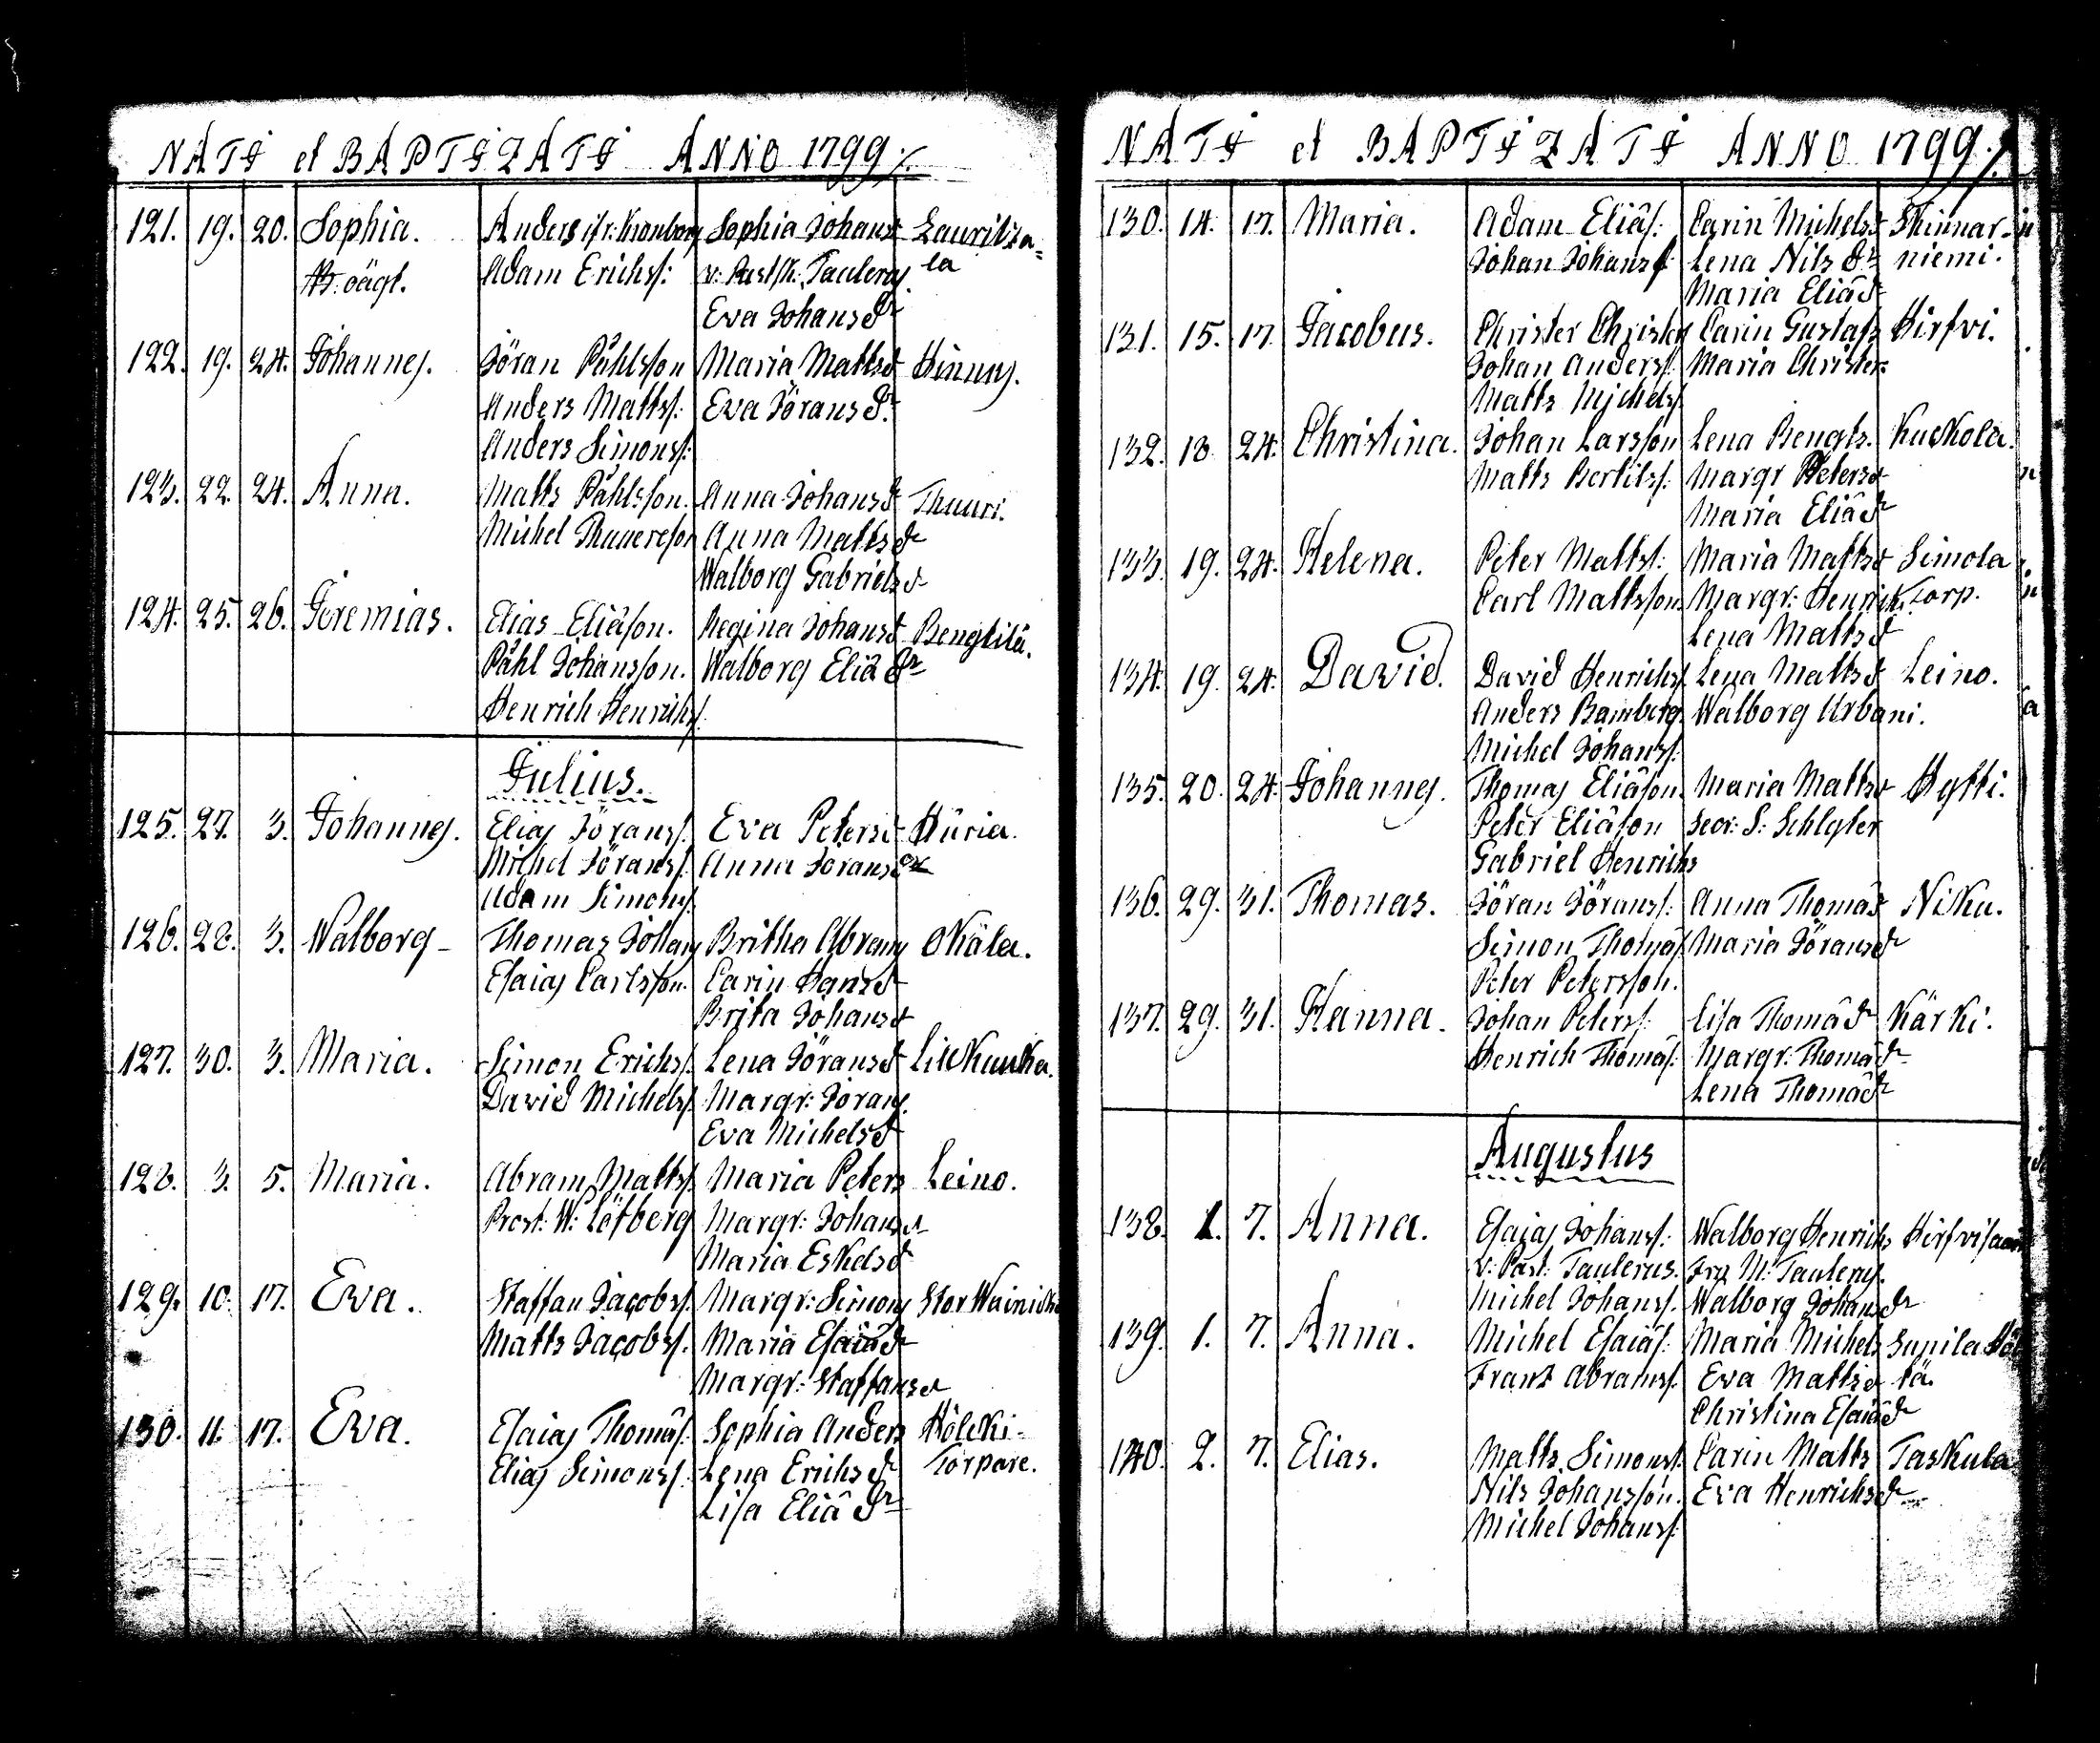 NATI et BAPTIZATI ANNO 1799
121. 19. 20. Sophia. Anders Kronborg Sophia Johansd Lauritza=
oägt. Adam Erichs: v: Past: Taulerus la
Eva Johansdr
122. 19. 24. Johannes. Jöran Påhlsson Maria Mattsd Kinnus.
Anders Matts: Eva Jöransd:
Anders Simons:
123. 22. 24. Anna. Matts Påhlsson. Anna Johansd Thuuri.
Michel Anna Mattsd
Walborg Gabrielsd
124. 25. 26. Jeremias. Elias Eliäson. Regina Johansd Bengtilä.
Påhl Johansson. Walborg Eliädr
Henrich Henrichs
Julius.
125. 27. 3. Johannes. Elias Jörans: Eva Petersd Huria.
Michel Jörans: Anna Joransd
Adam Simons
126. 28. 3. Walborg Thomas Johans Britha Abrams Okåla.
Esaias Carlsson. Carin Hansd
Brita Johansd
127. 30. 3. Maria. Simon Erichs: Lena Jöransd Litkunka.
David Michels: Margr: Jorans.
Eva Michelsd
128. 3. 5. Maria. Abram Matts: Maria Peters Leino.
Prost: W: Löfberg Margr: Johansd
Maria Eskelsd
129. 10. 17. Eva. Staffan Jacobs: Margr: Simons Stor
Matts Jacobs: Maria Esaiädr
Margr: Staffansd
130. 11. 17. Eva. Esaias Thomäs: Sophia Anders Hölcki-
Elias Simons: Lena Erichsd Torpare.
Lisa Eliädr
NATI et BAPTIZATI ANNO 1799
130. 14. 17. Maria. Adam Eliäs: Carin Michelsd Skinnar-
Johan Johans: Lena Nilsdr niemi.
Maria Eliädr
131. 15. 17. Jacobus. Christer Christers Carin Gustafs Hirfvi.
Johan Anders: Maria Christers
Matts Michels
132. 18. 24. Christina. Johan Larsson Lena Bengts. Kuckola.
Matts Bertils: Margr Petersd
Maria Eliädr
133. 19. 24. Helena. Peter Matts: Maria Mattsd Simola
Carl Mattsson. Margr: Henrik. Torp.
Lena Mattsd
134. 19. 24. David. David Henrichs Lena Mattsd Leino.
Anders Bamberg Walborg Urbani.
Michel Johans:
135. 20. 24. Johannes. Thomas Eliäson. Maria Mattsd Hytti.
Peter Eliäson Secr: S: Schlyter
Gabriel Henrichs
136. 29. 31. Thomas. Jöran Jörans: Anna Thomäd Niku.
Simon Thomäs Maria Jöransd
Peter Petersson.
137. 29. 31. Hanna. Johan Peters: Lisa Thomädr Kärki.
Henrich Thomäs: Margr: Thomädr
Lena Thomädr
Augustus
138. 1. 7. Anna. Esaias Johans: Walborg Henrichs Hirfvisaari
v: Past: Taulerus. Fru M: Taulerus.
Michel Johans: Walborg Johansdr
139. 1. 7. Anna. Michel Esaiäs: Maria Michels Supila
Frants Abrams: Eva Mattsd tä.
Christina Esaiädr
140. 2. 7. Elias. Matts Simons: Carin Matts Taskula
Nils Johansson. Eva Henrichsd
Michel Johans: